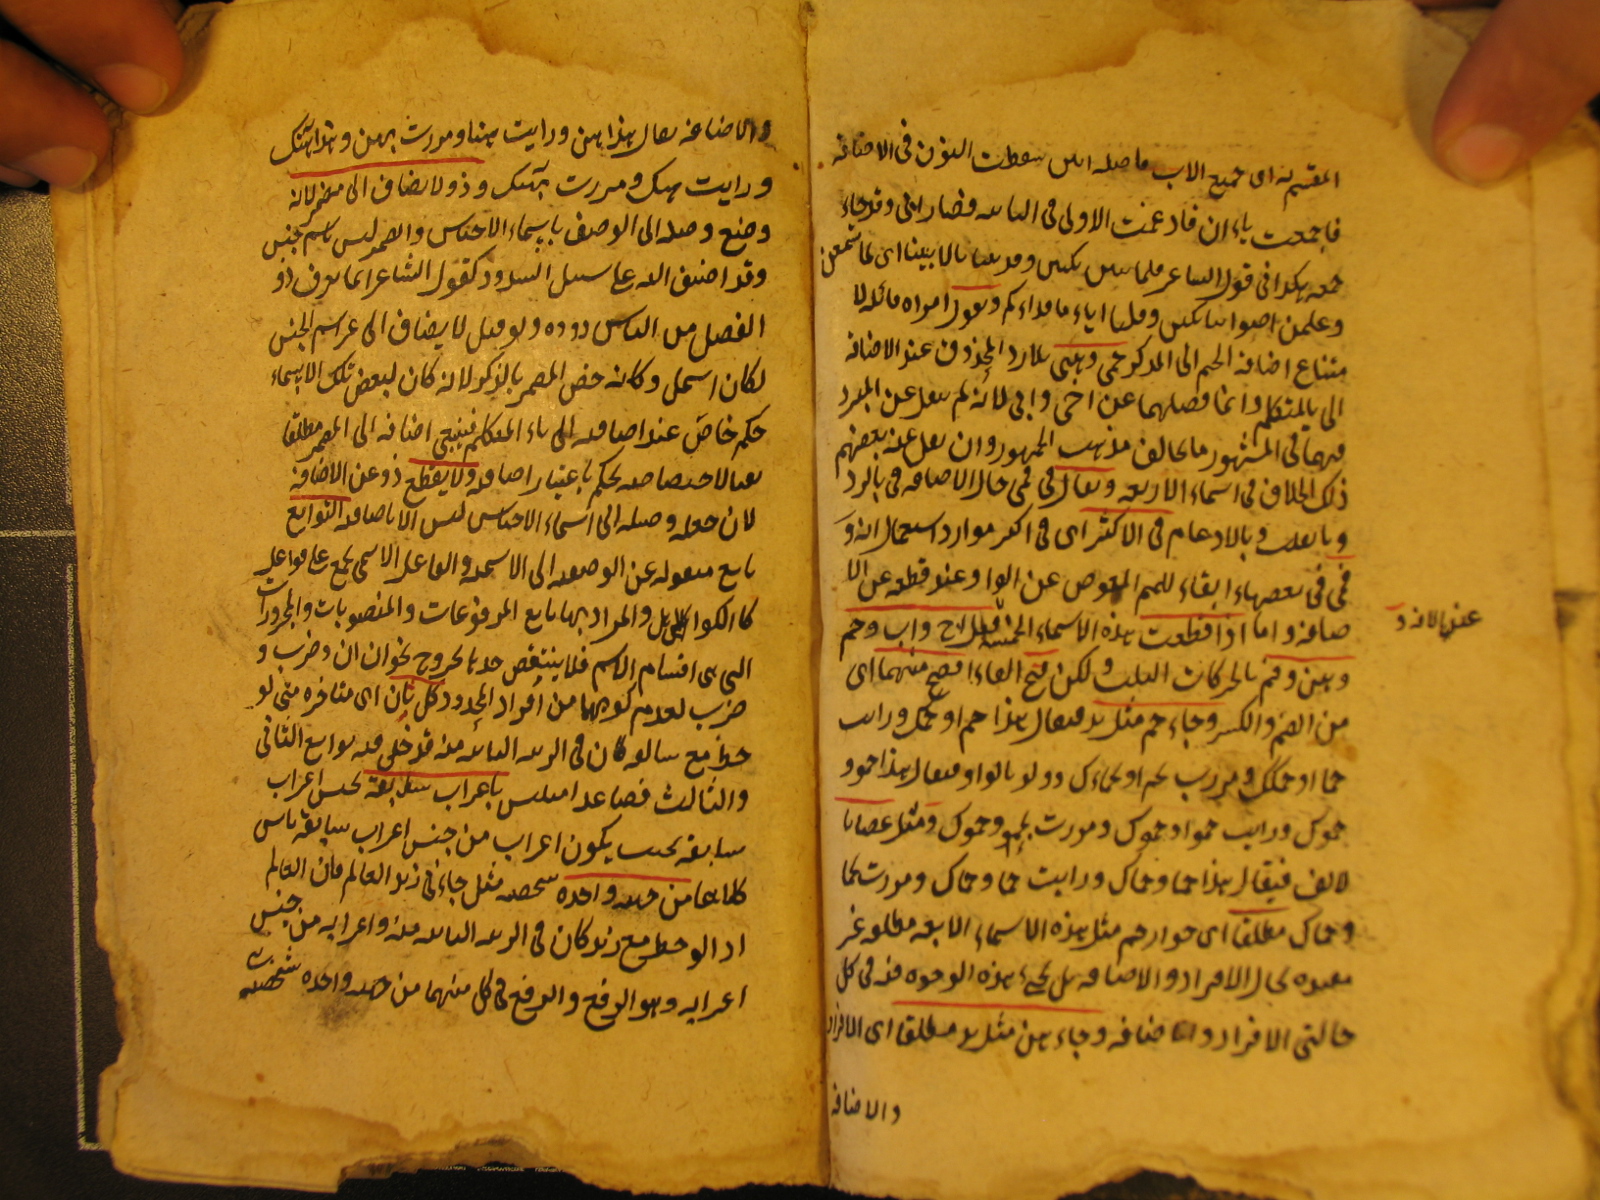 المقسم به اى جميع الاب ما صله ابين سقطت النون فى الاضافة
فاجتمعت ياءان فادغمت الاولى فى الثانيه فصار ابى وقد جاء
جمعه هكذا فى قول الشاعر فلما تبين وفديننا بالابينا اى لما سمعن
وعلمن اصواتنا بكين وقلن اباء ما فداءكم وتقول امراة قائلة لا
متناع اضافة الحم الى المذكر حمى وهنى بلا رد المحذوف عند الاضافة
الى ياء المتكلم وانما فصلهما عن اخى وابى لانه لم ينقل عن المبرد
فيهما فى المشهور ما يخالف مذهب الجمهور وان نقل عنه بعضهم
ذلك الخلاف فى اسماء الاربعه ويقال فى فمى حال الاضافه فى بالرد
و بالقلب وبالادغام فى الاكثر اى فى اكثر موارد استعمالاته و
فمى فى بعضها ابقاء للميم المعوض عن الواو عند قطعه عن الا
ضافه واما اذا قطعت هذه الاسماء الخمسة قيل اخ واب وحم
وهن وفم بالحركات الثلث ولكن فتح الفاء افصح منهما اى
من الضم والكسر وجاء حم مثل يد فيقال هذا حم او حمك ورايت
حما او حمك ومررت بحم او بحمك ك دلو بالواو فيقال هذا حمو و
حموك ورايت حموا وحموك ومررت بحمو وحموك ومثل عصا با
لالف فيقال هذا حما وحماك ورايت حما وحماك ومررت بحما
وحماك مطلقا اى جواز حم مثل هذه الاسماء الاربعه مطلقه غير
مقيده بحال الافراد والاضافه بل يجىء هذه الوجوه فيه فى كل
حالتى الافراد والاضافه وجاء هن مثل يد مطلقا اى الافراد
والاضافة
والاضافة يقال هذا هن ورايت هنا ومررت بهن وهذا هنك
ورايت هنك ومررت بهنك وذو لا يضاف الى مضمر لانه
وضع وصله الى الوصف باسماء الاجناس والضمير ليس باسم جنس
وقد اضيف اليه على سبيل الشذوذ كقول الشاعر انما يعرف ذو
الفضل من الناس ذووه ولو قيل لا يضاف الى غير اسم الجنس
لكان اشمل وكانه خص المضمر بالذكر لانه كان لبعض تلك الاسماء
حكم خاص عند اضافته الى ياء المتكلم فينبغى اضافه الى المضمر مطلقا
نفيا لاختصاصه بحكم باعتبار اضافته ولا يقطع ذو عن الاضافة
لان جعله وصله الى اسماء الاجناس ليس الا باضافته التوابع
تابع منقوله عن الوصفيه الى الاسميه والفاعل الاسمى يجمع على فواعل
كالكواهل والمراد بها تابع المرفوعات والمنصوبات والمجرورات
التى هى اقسام الاسم فلا ينتقض حدها بخروج نحو ان ان وضرب و
ضرب لعدم كونهما من افراد المحدود كل ثان اى متاخر متى لو
حظ مع سابقه كان فى الرتبه الثانيه منه فدخل فيه توابع الثانى
والثالث فصاعدا متلبس باعراب سابقه بجنس اعراب
سابقه بحيث يكون اعراب من جنس اعراب سابقه ناش
كلاهما من جهه واحده شخصيه مثل جاءنى زيد العالم فان العالم
اذا لوحظ مع زيد كان فى الرتبه الثانيه منه واعرابه من جنس
اعرابه وهو الرفع والرفع فى كل منهما من جهه واحده شخصيه